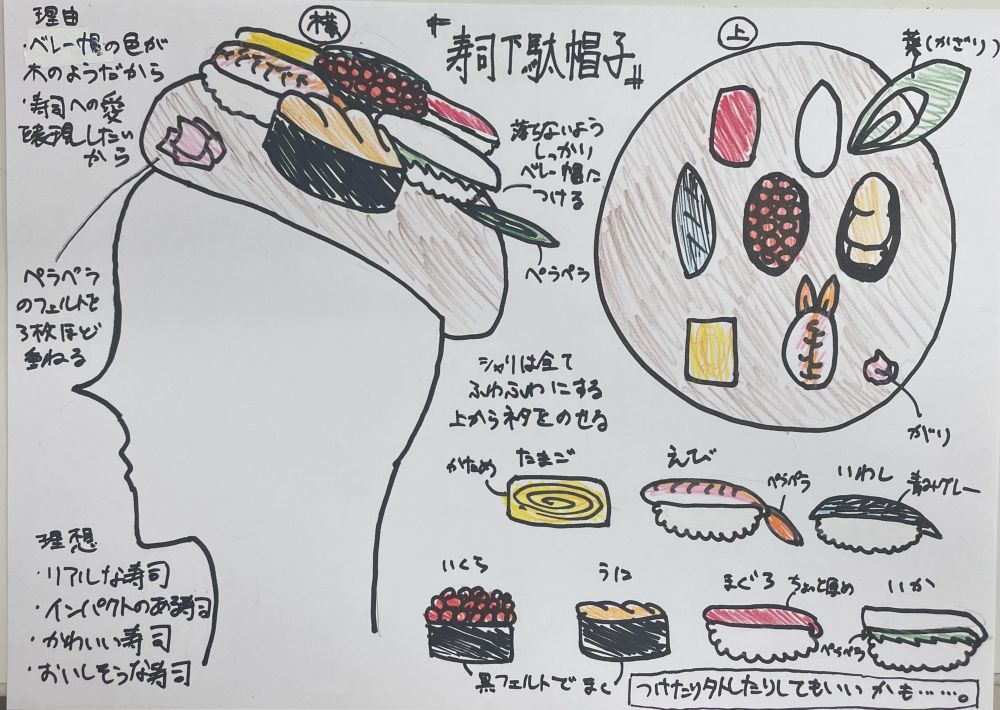 "寿司下駄帽子"
理由
・ベレー帽の色が
木のようだから
・寿司への愛
表現したい
から
横
上
葉(かざり)
落ちないよう
しっかり
ベレー帽に
つける
ペラペラ
ペラペラ
のフェルトを
3枚ほど
重ねる
がり
シャリは全て
ふわふわにする
上からネタをのせる
たまご
かため
えび
ペラペラ
いわし
青み+グレー
いくら
うに
黒フェルトでまく
まぐろ
ちょっと厚め
いか
ペラペラ
つけたり外したりしてもいいかも……。
理想
・リアルな寿司
・インパクトのある寿司
・かわいい寿司
・おいしそうな寿司